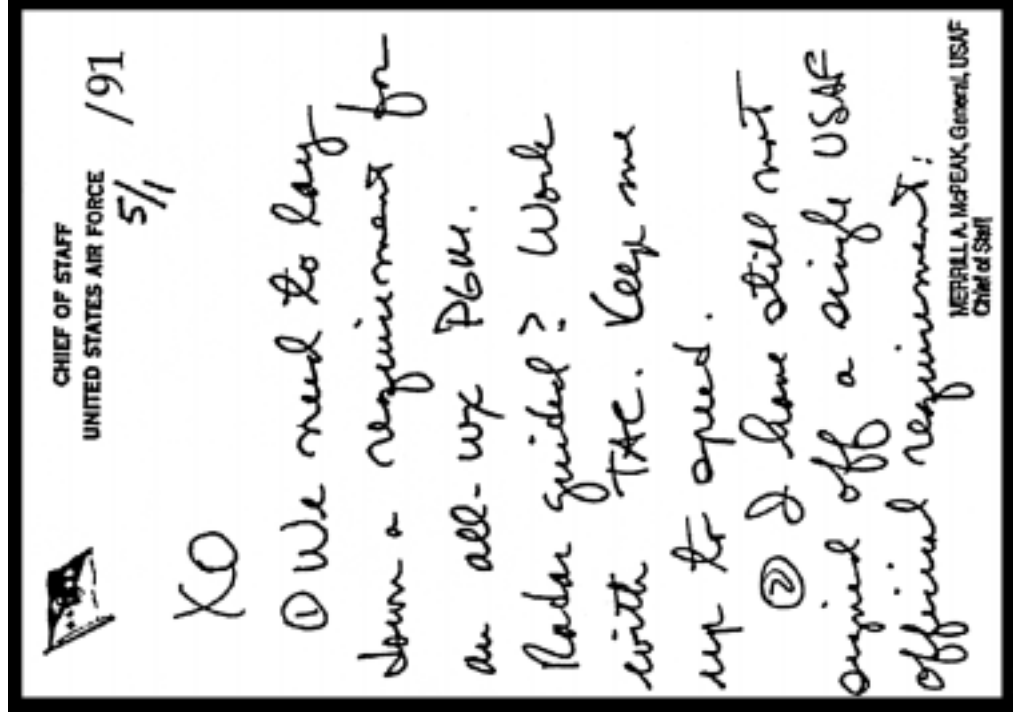 CHIEF OF STAFF
UNITED STATES AIR FORCE
5/1 /91
XO
① We need to lay
down a requirement for
an all-wx PGM.
Radar guided? Work
with TAC. Keep me
up to speed.
② I have still not
signed off a single USAF
official requirement!
MERRILL A. McPEAK, General, USAF
Chief of Staff